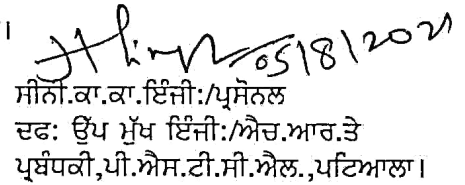 ।
05/8/2021
ਸੀਨੀ.ਕਾ.ਕਾ.ਇੰਜੀ:/ਪ੍ਰਸੋਨਲ
ਦਫ: ਉੱਪ ਮੁੱਖ ਇੰਜੀ:/ਐਚ.ਆਰ.ਤੇ
ਪ੍ਰਬੰਧਕੀ,ਪੀ.ਐਸ.ਟੀ.ਸੀ.ਐਲ.,ਪਟਿਆਲਾ।